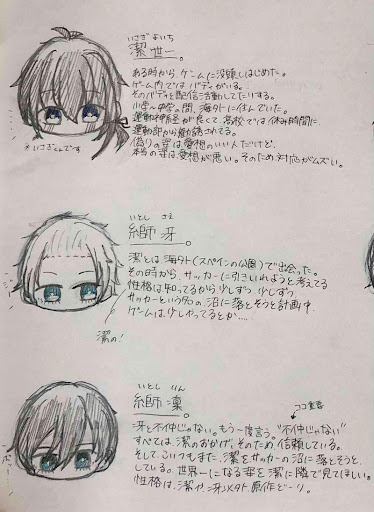 いさぎ よいち
潔 世一。
ある時から ゲームに没頭しはじめた。
ゲーム内ではバディがいる。
そのバディと配信活動してたりする。
小学〜中学の間、海外に住んでいた。
運動神経が良くて、高校では休み時間に、
運動部から勧誘される。
偽りの姿は愛想のいい人だけど、
本当の姿は愛想が悪い。そのため対応がムズい。
*いさぎくんです
いとし さえ
糸師 冴。
潔とは海外(スペインの公園)で出会った。
その時から、サッカーに引きいれようと考えてる
性格は知ってるから少しずつ 少しずつ
サッカーという名の沼に落とそうと計画中。
ゲームは少しやってるとか....
潔の!
いとし りん
糸師 凛。
ココ重要
冴と不仲じゃない。もう一度言う。"不仲じゃない"
すべては、潔のおかげ。そのため信頼している。
そして、こいつもまた、潔をサッカーの沼に落とそうと
している。世界一になる姿を潔に隣で見てほしい。
性格は、潔や、冴以外、原作どーり。